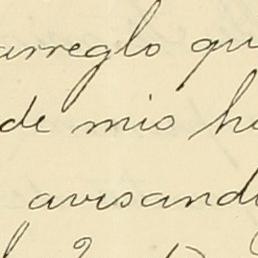 arreglo qu
de mis h
avisand